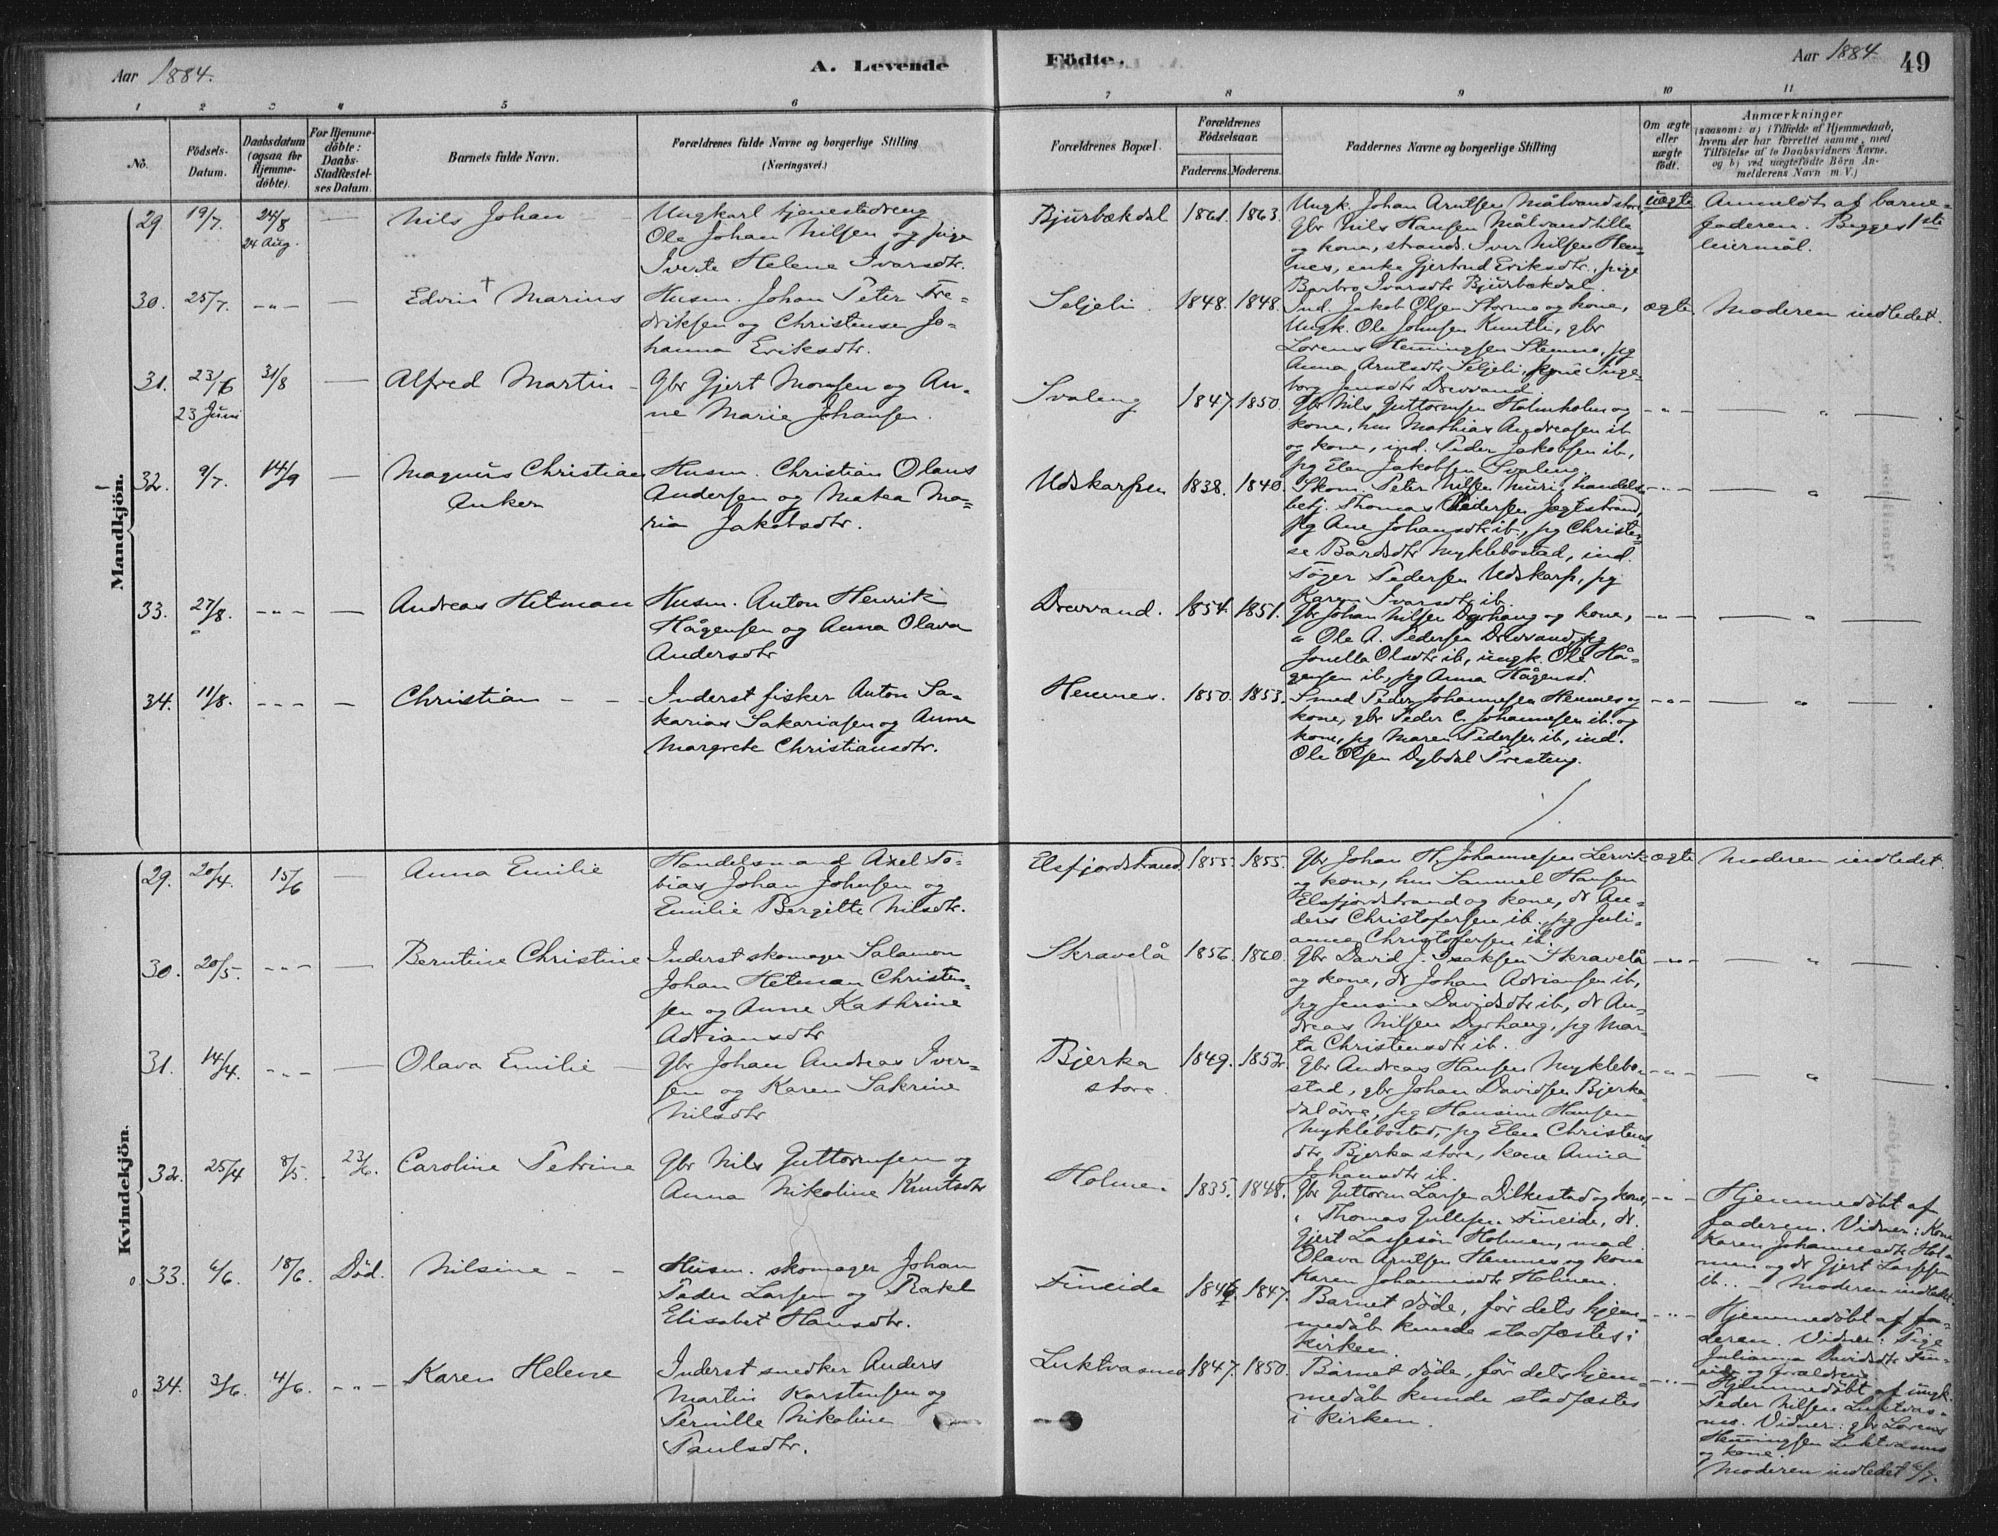 Aar 1884.
A. Levende
Födte.
Aar 1884
49
1 2 3 4 5 6 7 8 9 10 11
No.
Födsels-Datum.
Daabsdatum (ogsaa for Hjemme-döbte).
For Hjemme-döbte: Daabs-Stadfæstel-ses Datum.
Barnets fulde Navn.
Forældrenes fulde Navne og borgerlige Stilling (Næringsvei.)
Forældrenes Bopæl.
Forældrenes Födselsaar.
Faderens. Moderens.
Faddernes Navne og borgerlige Stilling
Om ægte eller uægte födt.
Anmærkninger
(saasom: a) i Tilfælde af Hjemmedaab, hvem der har forrettet samme, med Tilföielse af to Daabsvidners Navne. og b) ved uægtefödte Börn Anmelderens Navn m. V.)
Mandkjön.
29. 19/7. 24/8 24 Aug. — Nils Johan
Ungkarl tjenestedreng
Ole Johan Nilsen og pige
Iverte Helene Ivarsdtr.
Bjurbækdal 1861. 1863.
Ungk. Johan Arntsen Målvand store,
Gbr Nils Hansen Målvand lille
og kone, strands. Iver Nilsen Hem-
nes, enke Gjertrud Eriksdtr. pige
Barbro Ivarsdtr Bjurbækdal.
uægte
Anmeldt af barne-
faderen. Begges 1ste
leiermål.
30. 25/7. -"- — Edvin † Marius
Husm. Johan Peter Fre-
driksen og Christense Jo-
hanna Eriksdtr.
Seljeli. 1848. 1848.
Ind. Jakob Olsen Stormo og kone,
Ungk. Ole Johnsen Kuntli, gbr
Lorens Henningsen Stenmo, pg
Anna Arntsdtr Seljeli, kone Inge-
borg Jensdtr Drevvand.
ægte Moderen indledet.
31. 23/6 23 Juni 31/8 — Alfred Martin
Gbr Gjert Monsen og An-
ne Marie Johansen.
Svaleng 1847. 1850.
Gbr Nils Guttormsen Holmholm og
kone, hm Mathias Andreasen ib
og kone, ind. Peder Jakobsen ib,
pg Elen Jakobsen Svaleng.
-"- — " —
32. 9/7. 14/9 — Magnus Christian
Anker
Husm. Christian Olaus
Andersen og Matea Ma-
ria Jakobsdtr.
Udskarpen 1838. 1840.
Skom. Peter Nilsen Muri, handels-
betj. Thomas Pedersen Jægtstrand,
pg Ane Johansdtr ib., pg Christen-
se Bårdsdtr Myklebostad, ind.
Töger Pedersen Udskarp, pg
Karen Ivarsdtr ib.
-"- — " —
33. 27/8. -"- — Andreas Hetman
Husm. Anton Henrik
Hågensen og Anna Olava
Andersdtr
Drevvand. 1854. 1851.
Gbr Johan Nilsen Dyrhaug og kone,
" Ole A. Pedersen Drevvand, pg
Jonella Olsdtr ib, ungk. Ole Hå-
gensen ib, pg Anna Hågensd.
-"- — " —
34. 11/8. --- — Christian
Inderst fisker Anton Sa-
karias Sakariasen og Anne
Margrete Christiansdtr.
Hemnes. 1850. 1853.
Smed Peder Johannesen Hemnes og
kone, gbr Peder C. Johannesen ib. og
kone, pg Maren Pedersen ib, ind.
Ole Olsen Dybdal Presteng.
-"- — " —
Kvindekjön.
29. 20/4. 15/6 — Anna Emilie
Handelsmand Axel To-
bias Johan Johnsen og
Emilie Bergitte Nilsdtr.
Elsfjordstrand 1855. 1855.
Gbr Johan H. Johannesen Lervik
og kone, hm Sammel Hansen
Elsfjordstrand og kone, dr An-
ders Christofersen ib., pg Juli-
anna Christofersen ib.
ægte Moderen indledet.
30. 20/5. -"- — Berntine Christine
Inderst skomager Salamon
Johan Hetman Christen-
sen og Anne Kathrine
Adriansdtr
Skravelå 1856. 1860.
Gbr David J. Isaksen Skravelå
og kone, dr Johan Adriansen ib,
pg Jensine Davidsdtr ib, dr An-
dreas Nilsen Dyrhaug, pg Mar-
ta Christensdtr ib.
-"- — " —
31. 14/4. -"- — Olava Emilie
Gbr Johan Andreas Iver-
sen og Karen Sakrine
Nilsdtr
Bjerka
store. 1849. 1852.
Gbr Andreas Hansen Myklebo-
stad, gbr Johan Davidsen Bjerka-
dal övre, pg Hansine Hansen
Myklebostad, pg Elen Christens-
dtr Bjerka store, kone Anna
Johansdtr ib.
-"- — " —
32. 25/4 8/5. 23/6. Caroline Petrine
Gbr Nils Guttormsen og
Anna Nikoline Knutsdtr
Holmen 1835. 1848.
Gbr Guttorm Larsen Dilkestad og kone,
" Thomas Gullesen Fineide, dr.
Gjert Lassesön Holmen, mad.
Olava Arntsen Hemnes og kone
Karen Johannesdtr Holmen.
-"-
Hjemmedöbt af
faderen. Vidner: Kone
Karen Johannesdtr Hol-
men og dr Gjert Larssen
ib. - Moderen indledet.
0 33. 6/6. 18/6. Död. Nilsine
Husm. skomager Johan
Peder Larsen og Rakel
Elisabet Hansdtr.
Fineide 1846. 1847.
Barnet döde, för dets hjem-
medåb kunde stadfæstes i
kirken.
-"-
Hjemmedöbt af fa-
deren. Vidner: Pige
Julianna Davidsdtr Fin-
eide og forældrene
0 34. 3/6. 4/6. -"- Karen Helene
Inderst snedker Anders
Martin Karstensen og
Pernille Nikoline
Paulsdtr.
Luktvasmo 1847. 1850.
Barnet döde, för dets hjem-
medåb kunde stadfæstes
i kirken.
-"-
Hjemmedöbt af ungk.
Peder Nilsen Luktvas-
mo. Vidner: gbr Lorens
Henningsen Luktvasmo
og kone.
Moderen indledet 6/7.